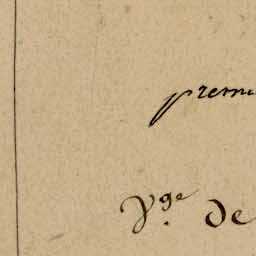 premi
Vge de